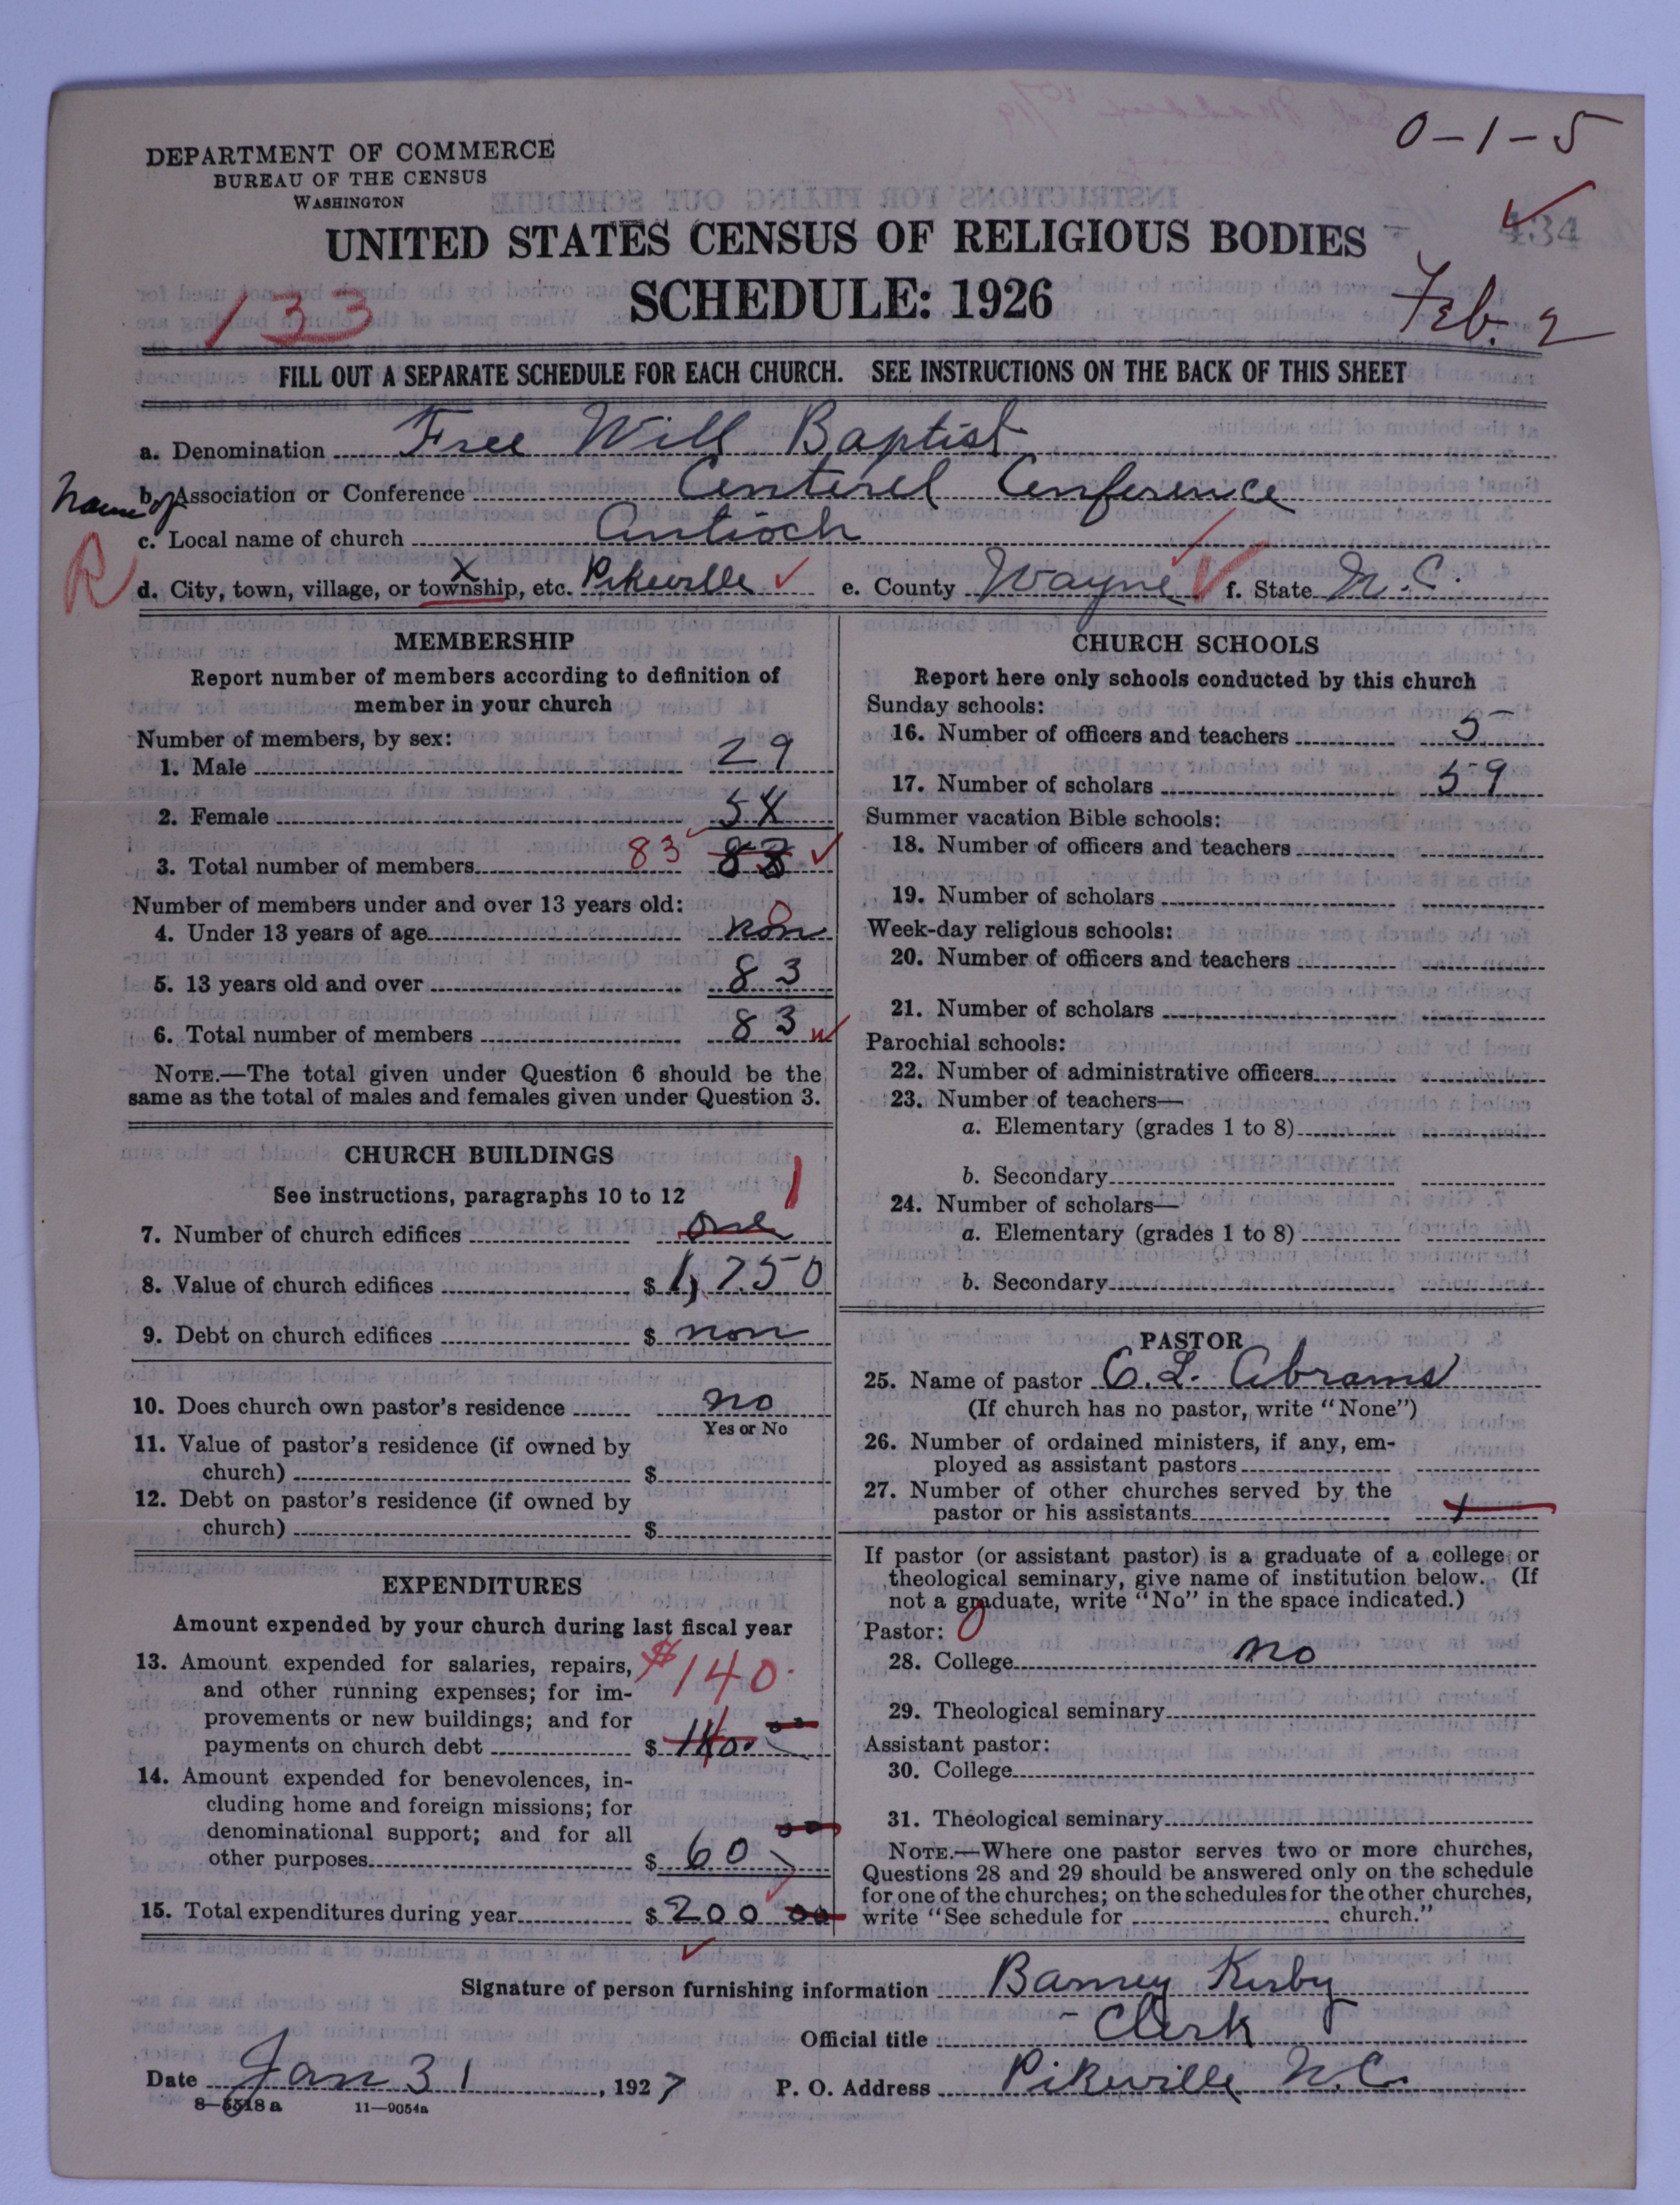 0-1-5
DEPARTMENT OF COMMERCE
BUREAU OF THE CENSUS
WASHINGTON
434
UNITED STATES CENSUS OF RELIGIOUS BODIES
SCHEDULE: 1926
133
Feb. 2
FILL OUT A SEPARATE SCHEDULE FOR EACH CHURCH. SEE INSTRUCTIONS ON THE BACK OF THIS SHEET
a. Denomination Free Will Baptist
Name of
b. Association or Conference Centerel Conference
c. Local name of church Antioch
R
d. City, town, village, or township, etc. Pikeville e. County Wayne f. State N.C.
MEMBERSHIP
Report number of members according to definition of
member in your church
Number of members, by sex:
1. Male 29
2. Female 54
3. Total number of members 83 83
Number of members under and over 13 years old:
4. Under 13 years of age non 0
5. 13 years old and over 83
6. Total number of members 83
NOTE.—The total given under Question 6 should be the
same as the total of males and females given under Question 3.
CHURCH BUILDINGS
See instructions, paragraphs 10 to 12
1
7. Number of church edifices one
8. Value of church edifices $ 1,750
9. Debt on church edifices $ non
10. Does church own pastor's residence no
Yes or No
11. Value of pastor's residence (if owned by
church) $
12. Debt on pastor's residence (if owned by
church) $
EXPENDITURES
Amount expended by your church during last fiscal year
13. Amount expended for salaries, repairs, $140.
and other running expenses; for im-
provements or new buildings; and for
payments on church debt $ 140.00
14. Amount expended for benevolences, in-
cluding home and foreign missions; for
denominational support; and for all
other purposes $ 60 00
15. Total expenditures during year $ 200 00
CHURCH SCHOOLS
Report here only schools conducted by this church
Sunday schools:
16. Number of officers and teachers 5
17. Number of scholars 59
Summer vacation Bible schools:
18. Number of officers and teachers
19. Number of scholars
Week-day religious schools:
20. Number of officers and teachers
21. Number of scholars
Parochial schools:
22. Number of administrative officers
23. Number of teachers—
a. Elementary (grades 1 to 8)
b. Secondary
24. Number of scholars—
a. Elementary (grades 1 to 8)
b. Secondary
PASTOR
25. Name of pastor C.L. Abrams
(If church has no pastor, write "None")
26. Number of ordained ministers, if any, em-
ployed as assistant pastors
27. Number of other churches served by the
pastor or his assistants
If pastor (or assistant pastor) is a graduate of a college or
theological seminary, give name of institution below. (If
not a graduate, write "No" in the space indicated.)
Pastor: 0
28. College no
29. Theological seminary
Assistant pastor:
30. College
31. Theological seminary
NOTE.—Where one pastor serves two or more churches,
Questions 28 and 29 should be answered only on the schedule
for one of the churches; on the schedules for the other churches,
write "See schedule for church."
Signature of person furnishing information Barney Kirby
Official title - Clerk
Date Jan 31, 1927 P. O. Address Pikeville N.C.
8-5518a 11-9054a